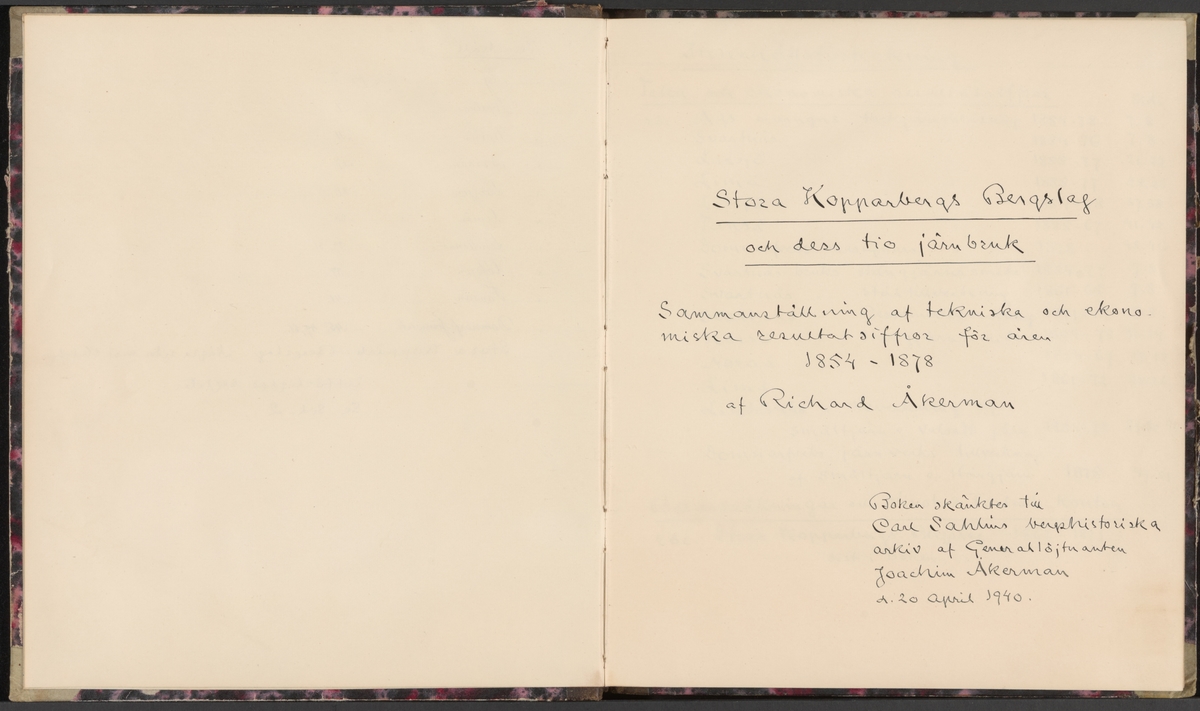 Stora Kopparbergs Bergslag
och dess tio järnbruk
Sammanställning af tekniska och ekono-
miska resultatsiffror för åren
1854 - 1878
af Richard Åkerman
Boken skänktes till
Carl Sahlins bergshistoriska
arkiv af Generallöjtnanten
Joachim Åkerman
d. 20 April 1940.